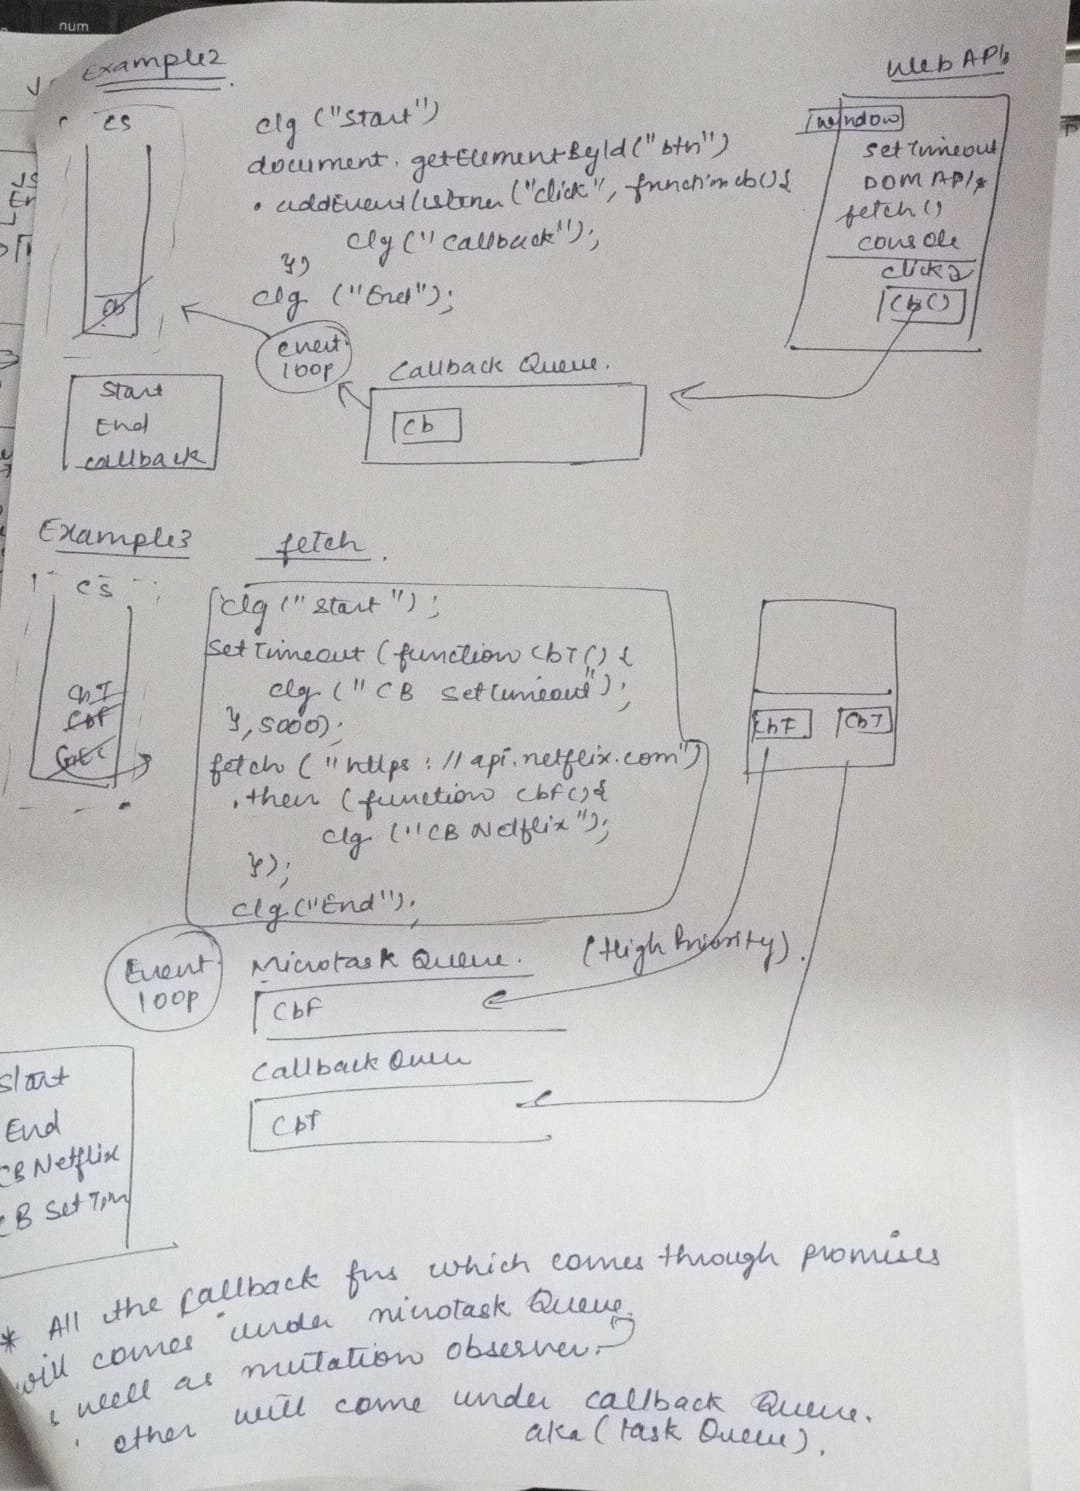 num
Example2
Web APIs
CS
clg ("Start")
document. getElementById("btn")
. addEventListener ("click", function cb(){
clg ("callback");
})
clg ("End");
window
setTimeout
DOM APIs
fetch()
console
click
cb()
cb
event
loop
Callback Queue.
cb
Start
End
callback
Example3
fetch.
CS
clg ("Start");
SetTimeout (function cbT() {
clg ("CB SetTimeout");
}, 5000);
fetch ("https://api.netflix.com")
.then (function cbf(){
clg ("CB Netflix");
});
clg ("End");
CbT
CbF
GEC
CbF
CbT
Event
loop
Microtask Queue.
(High Priority).
CbF
Callback Queue
CbT
Start
End
CB Netflix
CB SetTim
* All the callback fns which comes through promises
will comes under microtask Queue.
well as mutation observer.
other will come under callback Queue.
aka (task Queue).